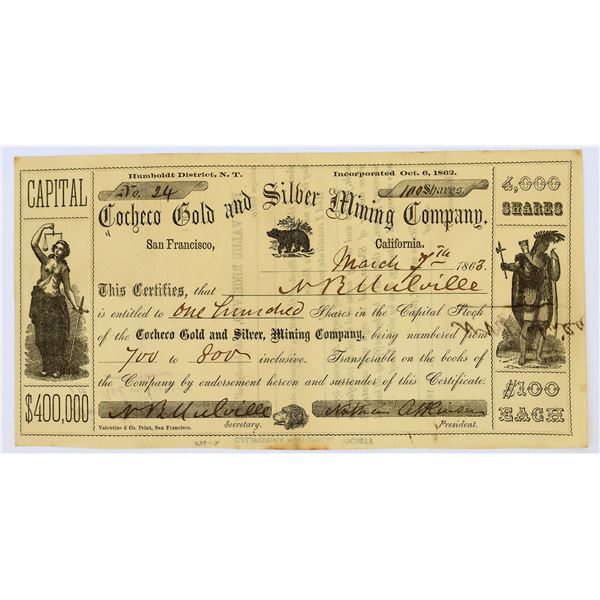 Humboldt District, N. T. Incorporated Oct. 6, 1862.
CAPITAL
No. 24
100 Shares
4,000
SHARES
Cocheco Gold and Silver Mining Company.
San Francisco, California.
March 7th 1863.
This Certifies, that N B Mulville
is entitled to One hundred Shares in the Capital Stock
of the Cocheco Gold and Silver, Mining Company, being numbered from
700 to 800 inclusive. Transferable on the books of
the Company by endorsement hereon and surrender of this Certificate.
$400,000
$100
EACH
N B Mulville
Nathan Atkinson
Valentine & Co. Print, San Francisco. Secretary. President.